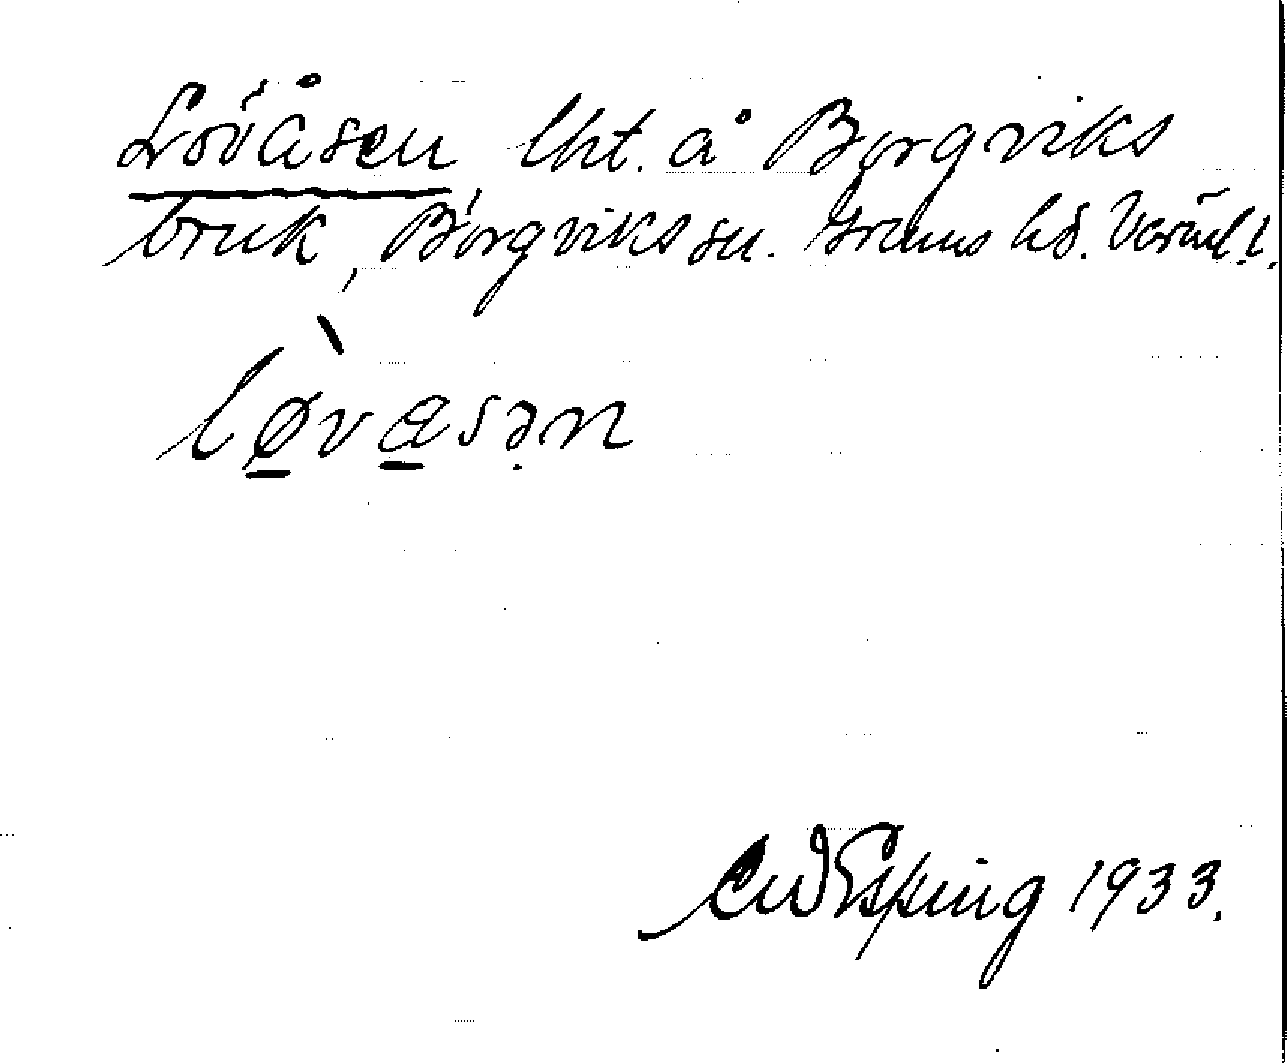 Lövåsen lht. å Borgviks
bruk, Borgviks sn. Grums hd. Värml.
lø̠̀væ̠sən
CW Esping 1933.